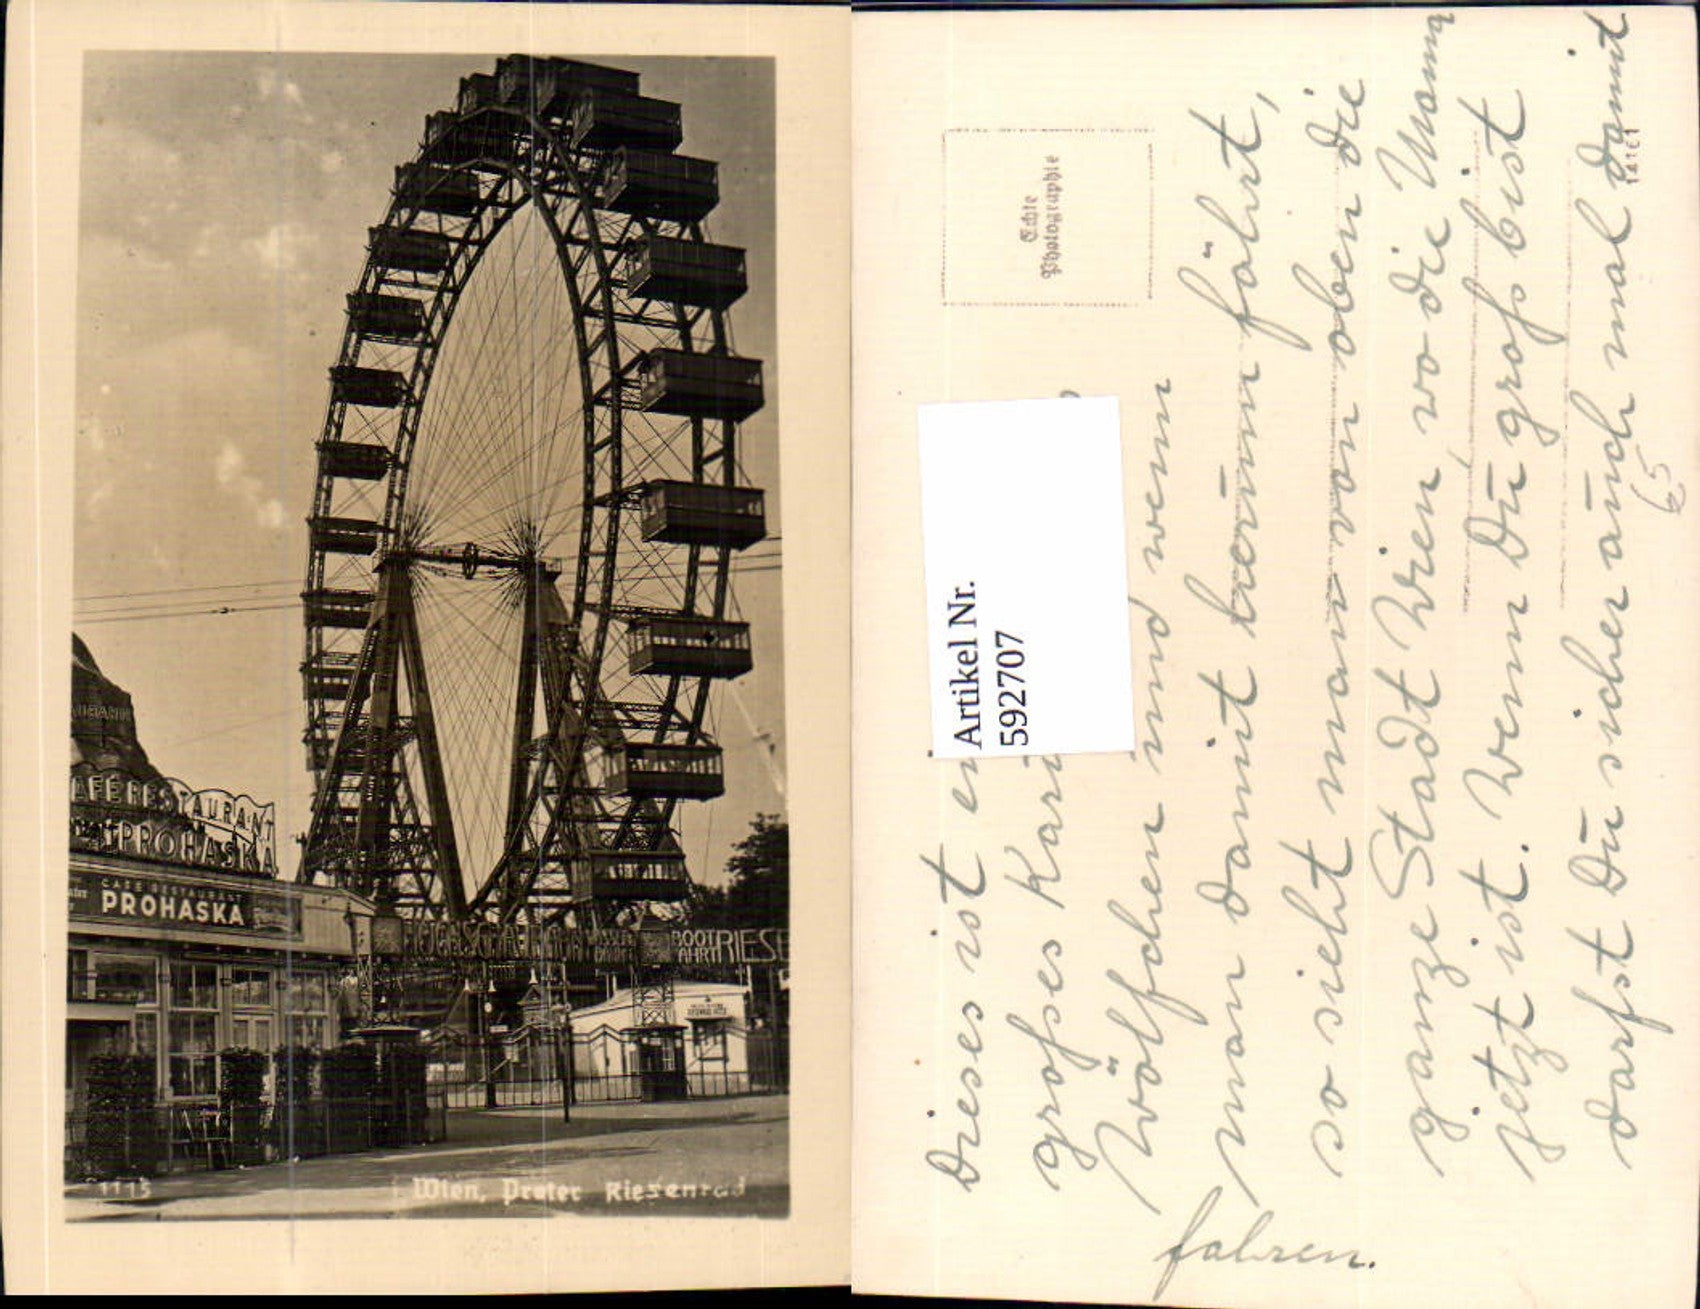 AFÉ RESTAURANT
PROHASKA
CAFE RESTAURANT
PROHASKA
BOOT
FAHRT
RIESE
1115
Wien, Prater Riesenrad
Echte
Photographie
Artikel Nr.
592707
Dieses ist
großes Kar
Wölfchen und wenn
man damit herum fährt,
so sieht man von oben die
ganze Stadt Wien wo die Mama
jetzt ist. Wenn Du groß bist
darfst Du sicher auch mal damit
fahren.
65